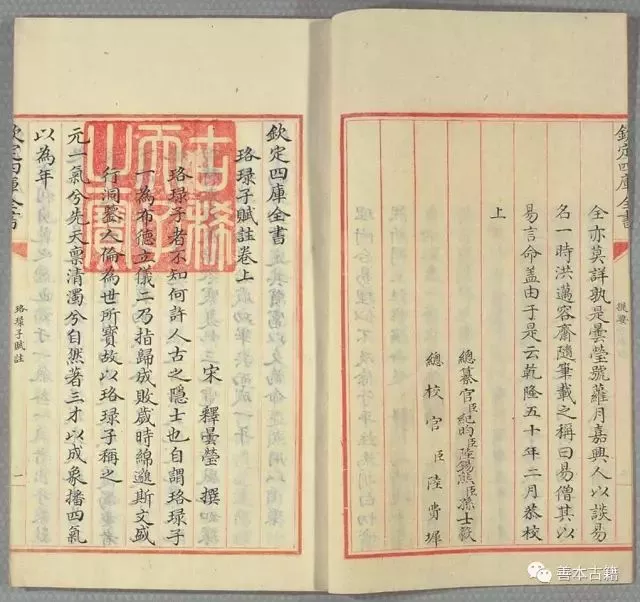 欽定四庫全書
提要
全亦莫詳孰是曇瑩號蘿月嘉興人以談易
名一時洪邁容齋隨筆載之稱曰易僧其以
易言命盖由于是云乾隆五十年二月恭校
上
總纂官臣紀昀臣陸錫熊臣孫士毅
總校官臣陸費墀
欽定四庫全書
珞琭子賦註卷上
宋 釋曇瑩 撰
珞琭子者不知何許人古之隠士也自謂珞琭子
一為布德立儀二乃指歸成敗歲時綿邈斯文盛
行洞鑒人倫為世所寳故以珞琭子稱之
元一氣兮先天稟清濁兮自然著三才以成象播四氣
以為年
欽定四庫全書
珞琭子賦註
一
古稀
天子
之寶
善本古籍